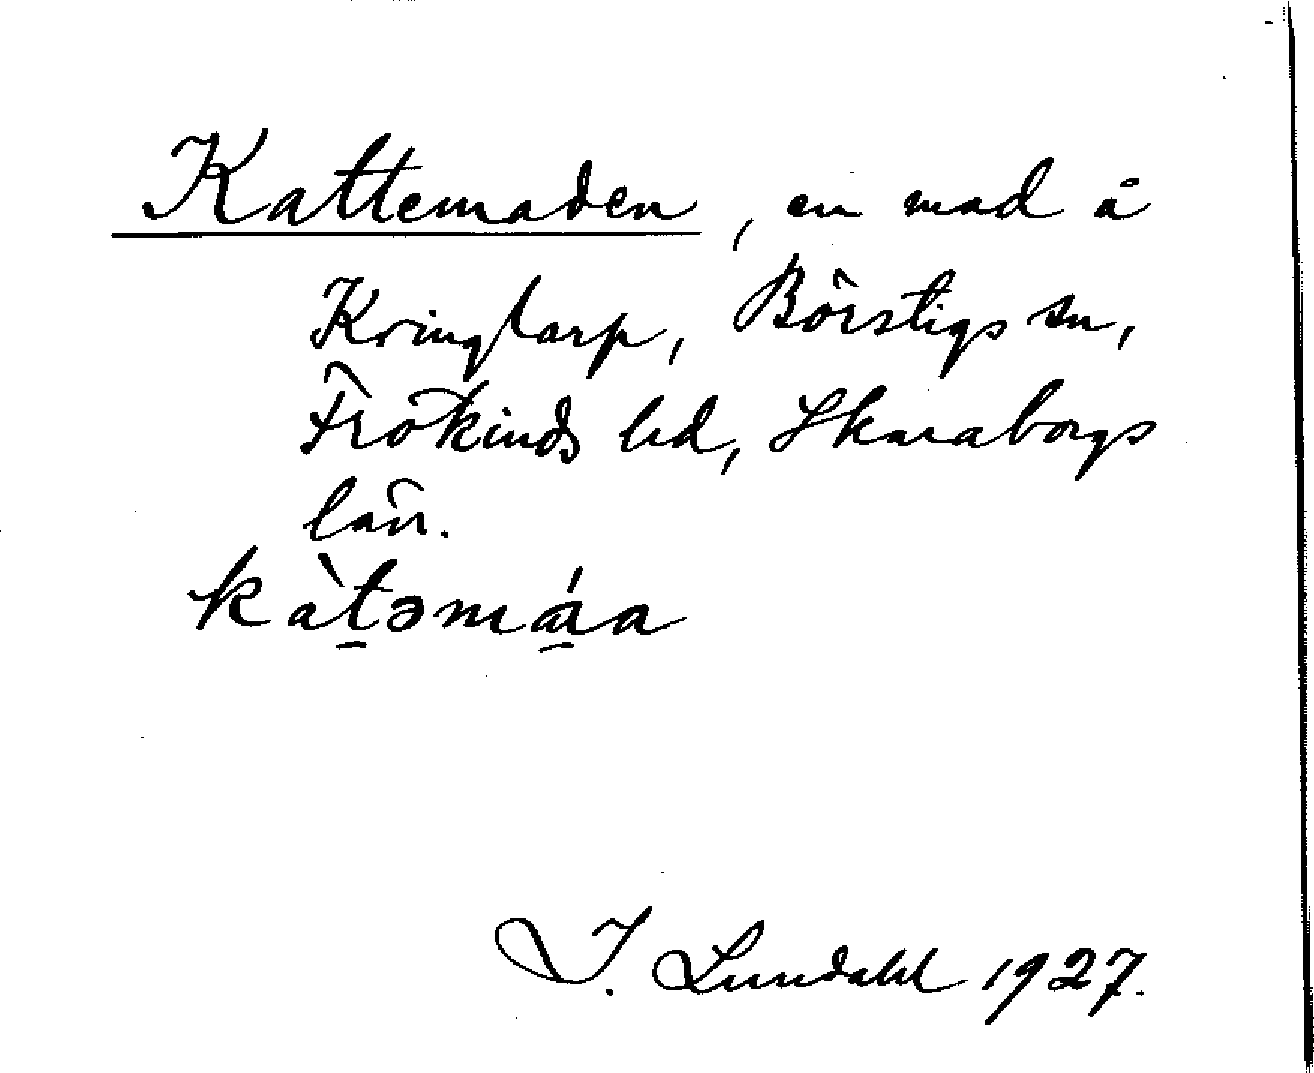 Kattemaden, en mad å
Kringtarp, Börstigs sn,
Frökinds hd, Skaraborgs
län.
kàt̠əmá̠a
I. Lundahl 1927.